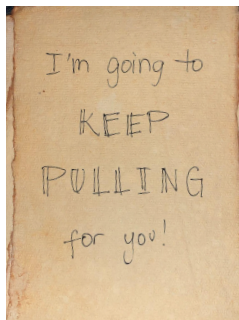 I'm going to
KEEP
PULLING
for you!